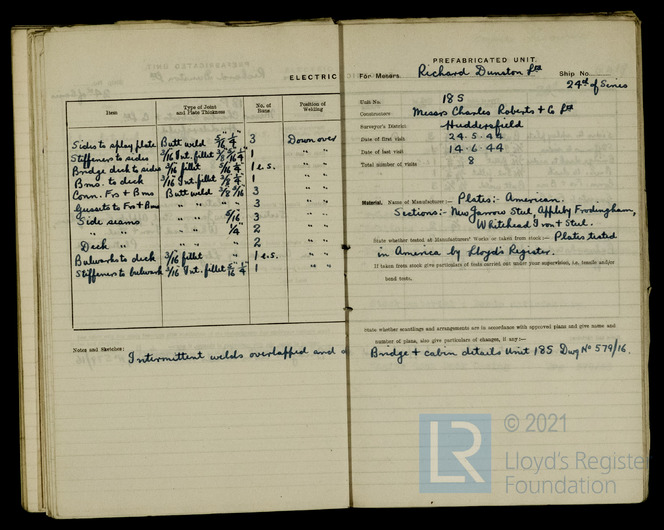 ELECTRIC
Item Type of Joint and Plate Thickness No. of Runs Position of Welding
Sides to splay plate Butt weld 5/16 1/4 3 Downover
Stiffeners to sides 3/16 Int. fillet 1 " "
Bridge deck to sides 3/16 fillet 5/16 1/4 1 e.s. " "
Bms. to deck 3/16 Int. fillet 1 " "
Conn. Frs + Bms Butt weld 3 " "
Gussets to Frs + Bms " " 3 " "
Side seams " " 5/16 3 " "
" " " " 1/4 2 " "
Deck " " " 2 " "
Bulwarks to deck 3/16 fillet " 1 e.s. " "
Stiffeners to bulwark 3/16 Int. fillet 5/16 1/4 1 " "
Notes and Sketches:
Intermittent welds overlapped and
PREFABRICATED UNIT
For Messrs. Richard Dunston Ltd
Ship No.
24th of Series
Unit No. 185
Constructors Messrs Charles Roberts + Co Ltd
Surveyor's District Huddersfield
Date of first visit 24-5-44
Date of last visit 14-6-44
Total number of visits 8
Material. Name of Manufacturer:— Plates:- American.
Sections:- New Jarrow Steel, Appleby Frodingham,
Whitehead Iron + Steel.
State whether tested at Manufacturers' Works or taken from stock:— Plates tested
in America by Lloyd's Register.
If taken from stock give particulars of tests carried out under your supervision, i.e. tensile and/or
bend tests.
State whether scantlings and arrangements are in accordance with approved plans and give name and
number of plans, also give particulars of changes, if any:—
Bridge + cabin details Unit 185 Dwg No 579/16.
LR
© 2021
Lloyd's Register
Foundation